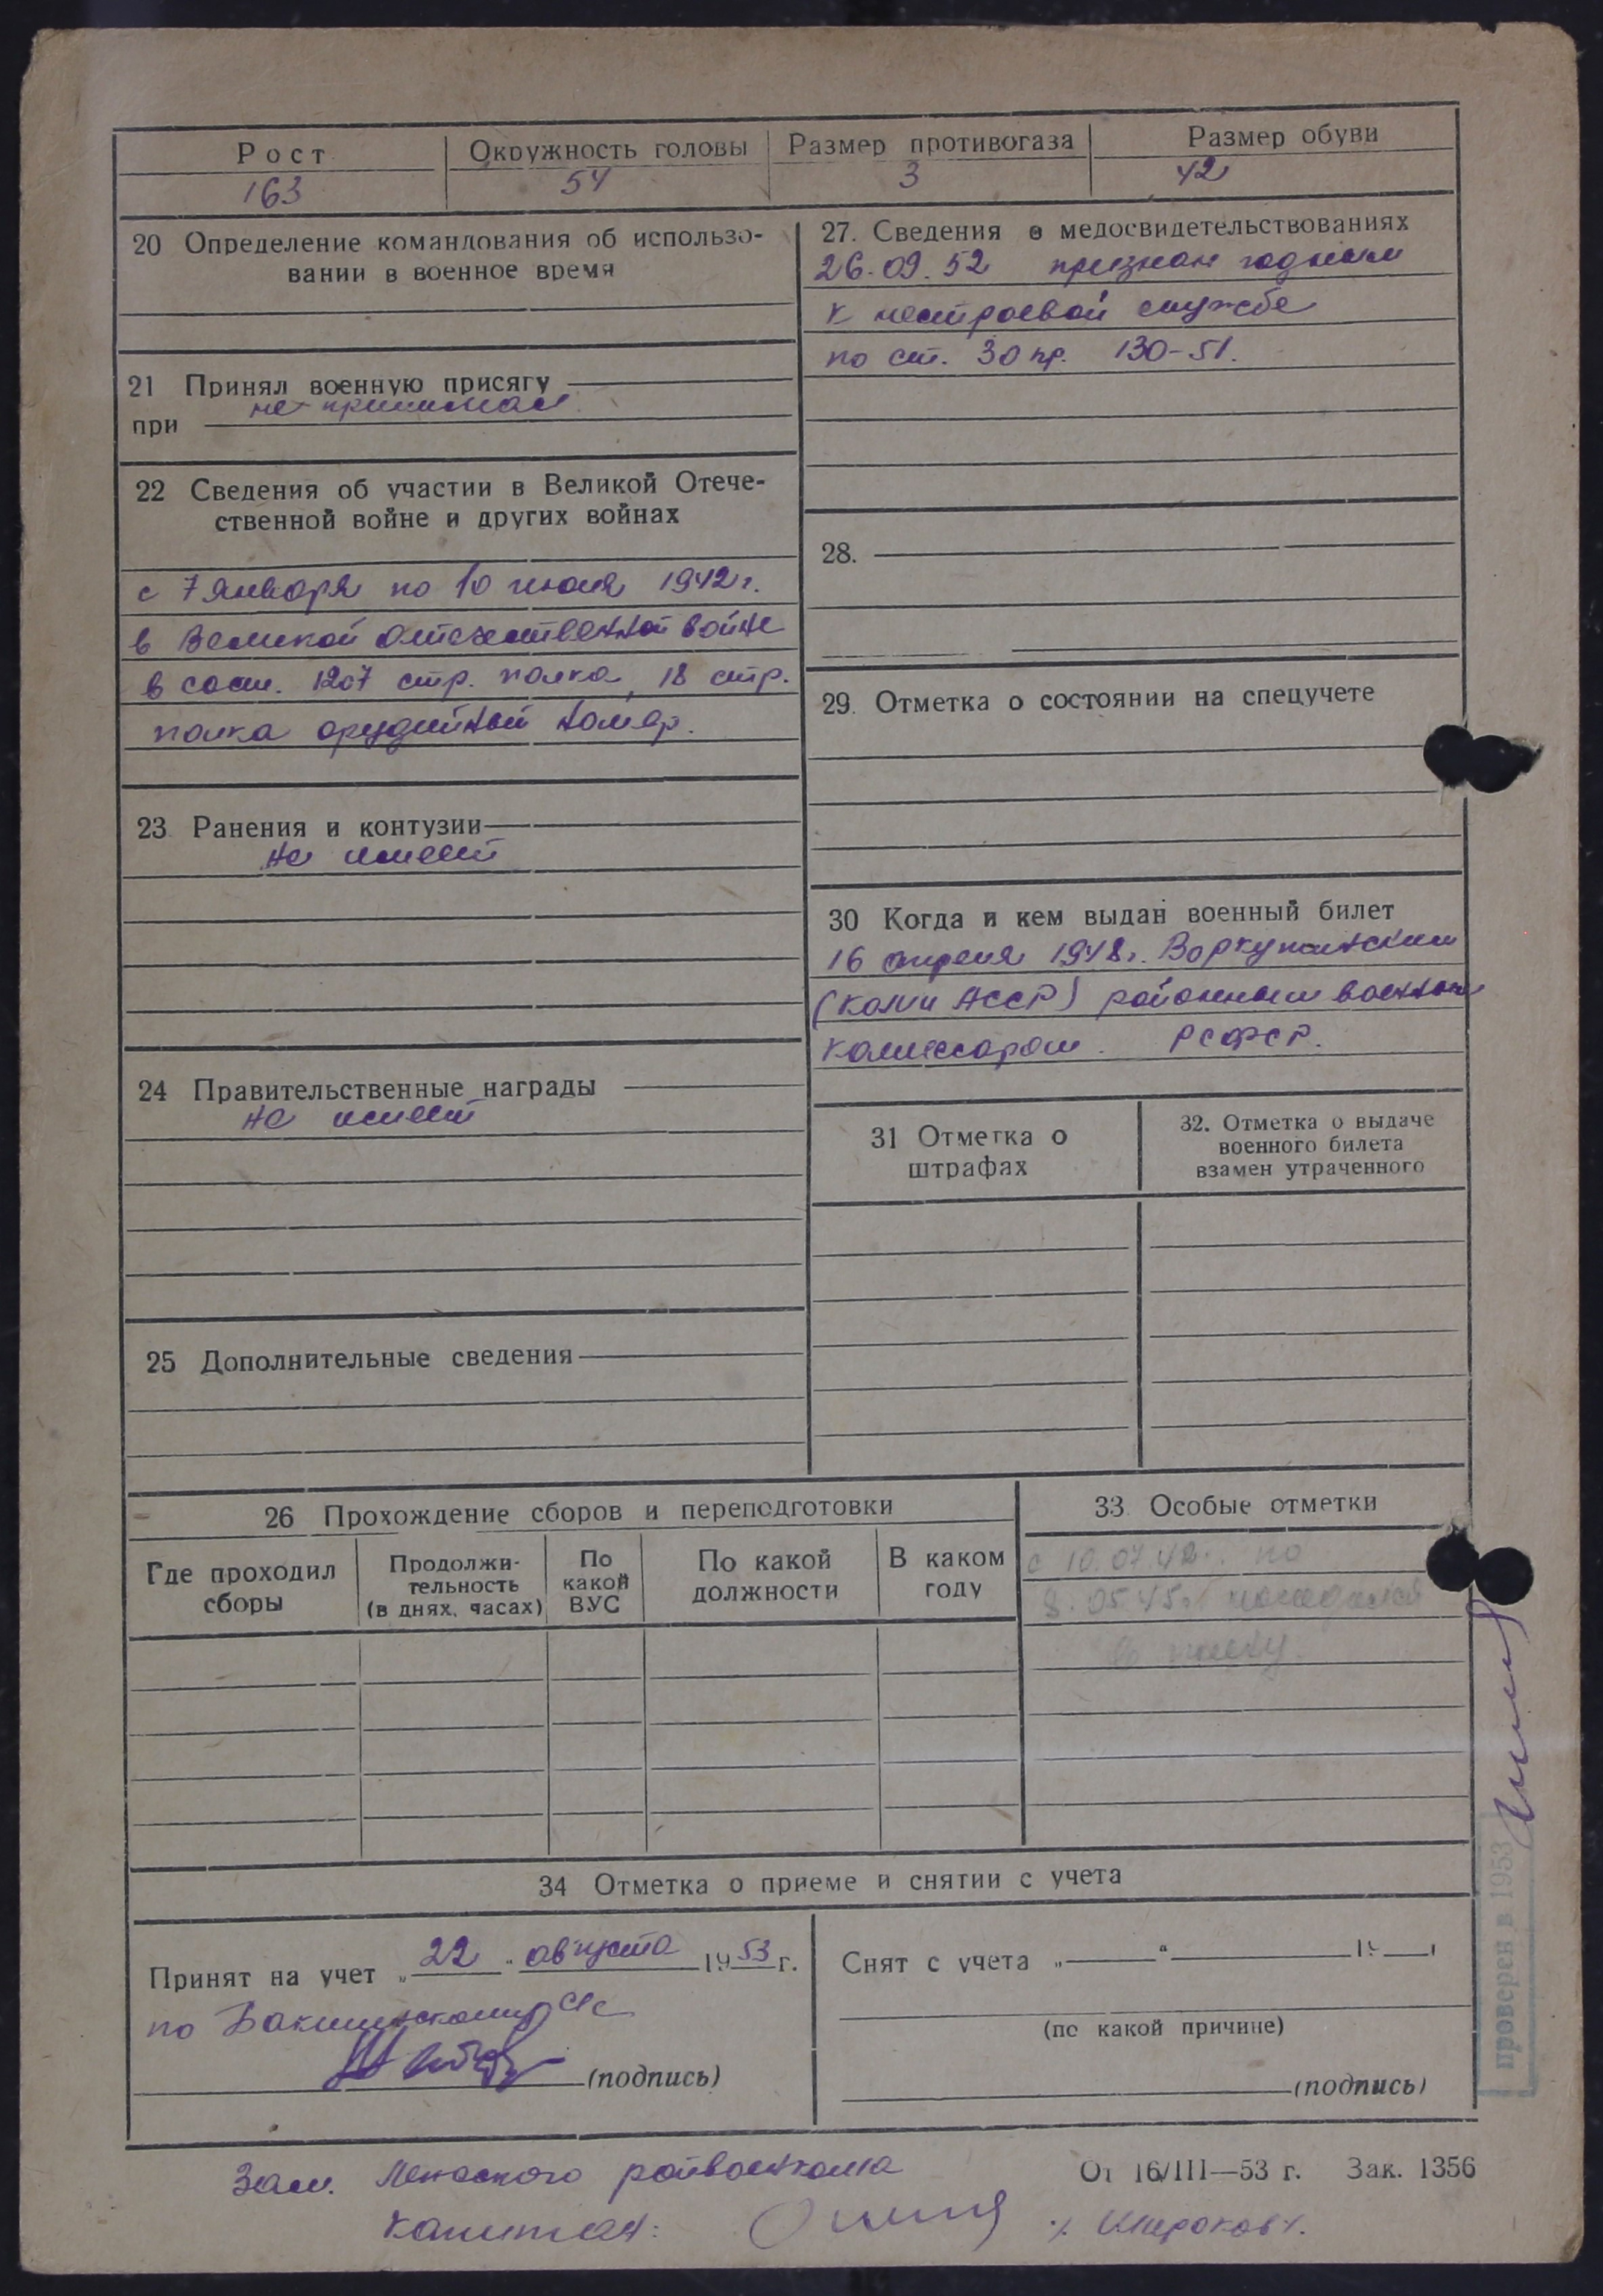 Рост Окружность головы Размер противогаза Размер обуви
163 54 3 42
20 Определение командования об использо-
вании в военное время
21 Принял военную присягу
не принимал
при
22 Сведения об участии в Великой Отече-
ственной войне и других войнах
с 7 января по 10 июля 1942 г.
в Великой Отечественной войне
в сост. 1207 стр. полка, 18 стр.
полка орудийный номер.
23 Ранения и контузии
не имеет
24 Правительственные награды
не имеет
25 Дополнительные сведения
27. Сведения о медосвидетельствованиях
26.09.52 признан годным
к нестроевой службе
по ст. 30 пр. 130-51.
28.
29. Отметка о состоянии на спецучете
30 Когда и кем выдан военный билет
16 апреля 1948 г. Воркутинским
(Коми АССР) районным военным
комиссаром. РСФСР.
31 Отметка о
штрафах
32. Отметка о выдаче
военного билета
взамен утраченного
26 Прохождение сборов и переподготовки
Где проходил
сборы
Продолжи-
тельность
(в днях, часах)
По
какой
ВУС
По какой
должности
В каком
году
33 Особые отметки
с 10.07.42 г. по
8.05.45 г. находился
в плену.
34 Отметка о приеме и снятии с учета
Принят на учет „ 22 " августа 1953 г.
по с/с
(подпись)
Снят с учета „ " 19 г
(по какой причине)
(подпись)
проверен в 1953
Зам. райвоенкома
От 16/III—53 г. Зак. 1356
капитан: /Широков/.